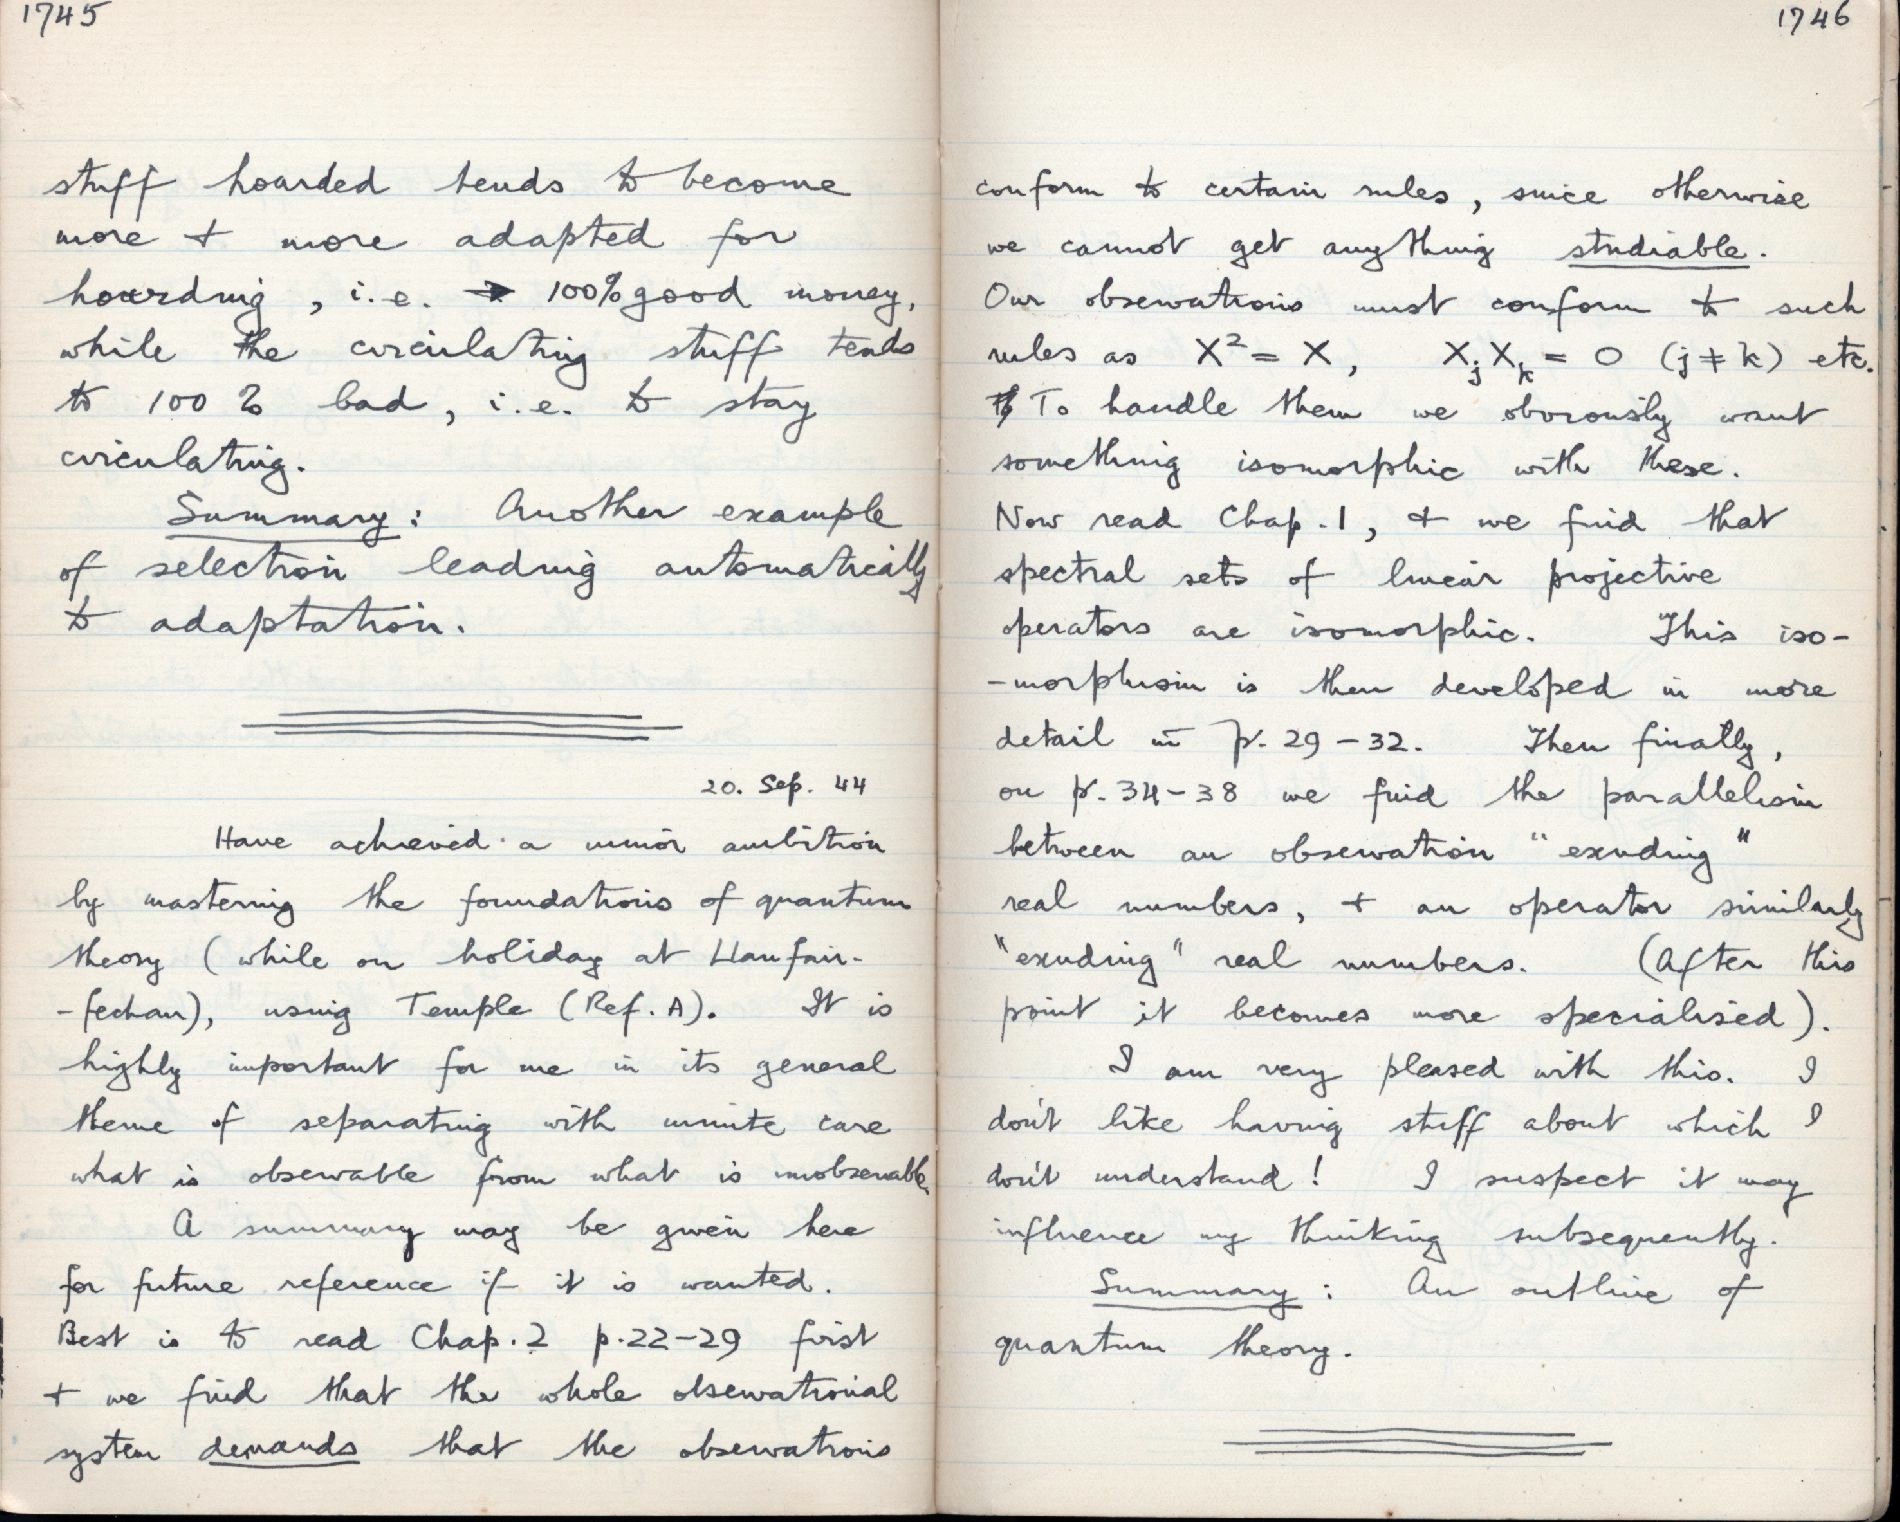 1745
stuff hoarded tends to become
more + more adapted for
hoarding, i.e. → 100% good money,
while the circulating stuff tends
to 100% bad, i.e. to stay
circulating.
Summary: Another example
of selection leading automatically
to adaptation.
20. Sep. 44
Have achieved a minor ambition
by mastering the foundations of quantum
theory (while on holiday at Llanfair-
-fechan), using Temple (Ref. A). It is
highly important for me in its general
theme of separating with minute care
what is observable from what is unobservable.
A summary may be given here
for future reference if it is wanted.
Best is to read Chap. 2 p. 22-29 first
+ we find that the whole observational
system demands that the observations
1746
conform to certain rules, since otherwise
we cannot get anything studiable.
Our observations must conform to such
rules as X² = X, XⱼXₖ = 0 (j ≠ k) etc.
To handle them we obviously want
something isomorphic with these.
Now read Chap. 1, + we find that
spectral sets of linear projective
operators are isomorphic. This iso-
-morphism is then developed in more
detail in p. 29-32. Then finally,
on p. 34-38 we find the parallelism
between an observation "exuding"
real numbers, + an operator similarly
"exuding" real numbers. (After this
point it becomes more specialised).
I am very pleased with this. I
don't like having stuff about which I
don't understand! I suspect it may
influence my thinking subsequently.
Summary: An outline of
quantum theory.